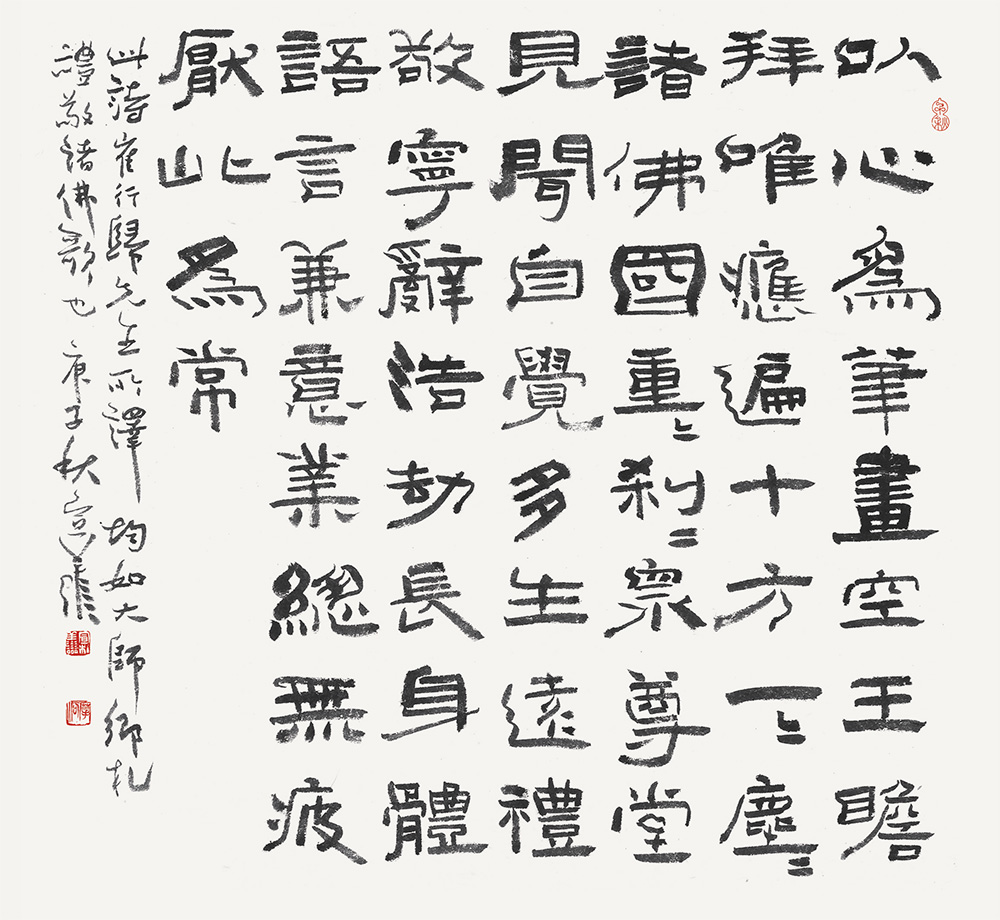 以心爲筆畫空王瞻
拜唯應遍十方一〻塵〻
諸佛國重〻刹〻眾尊堂
見聞自覺多生遠禮
敬寧辭浩劫長身體
語言兼意業總無疲
厭此爲常
此詩崔行歸先生所譯均如大師鄉札
禮敬諸佛歌也 庚子秋